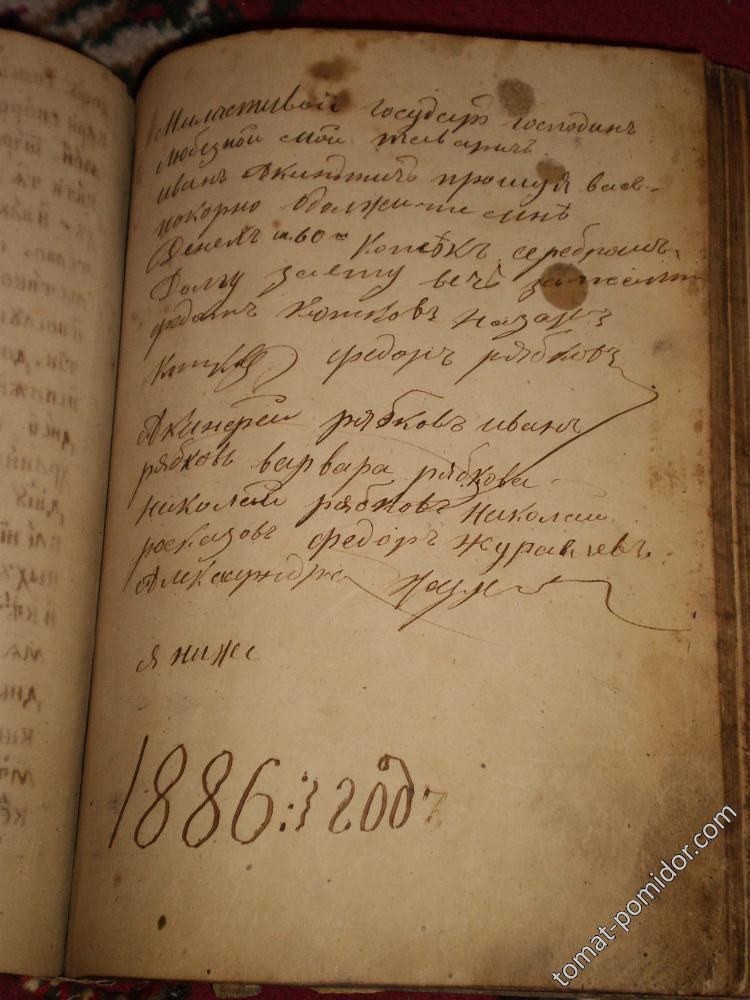 Миластивой государь господинъ
любезной мой таваричъ
иванъ Акинфичъ прошу я васъ
покорно одолжите мнѣ
Денехъ 60 Копѣкъ серебромъ
Долгу заему
федотъ Котковъ казакъ
федоръ рябковъ
Акинфей рябковъ иванъ
рябковъ варвара рябкова
николай рябковъ николай
росказовъ федоръ журавлевъ
Александра
я ниже
1886:з годъ
tomat-pomidor.com